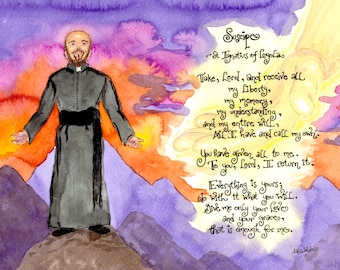 Suscipe
St. Ignatius of Loyola
Take, Lord, and receive all
my liberty,
my memory,
my understanding,
and my entire will,
All I have and call my own.
You have given all to me.
To you, Lord, I return it.
Everything is yours;
do with it what you will.
Give me only your love
and your grace,
that is enough for me.